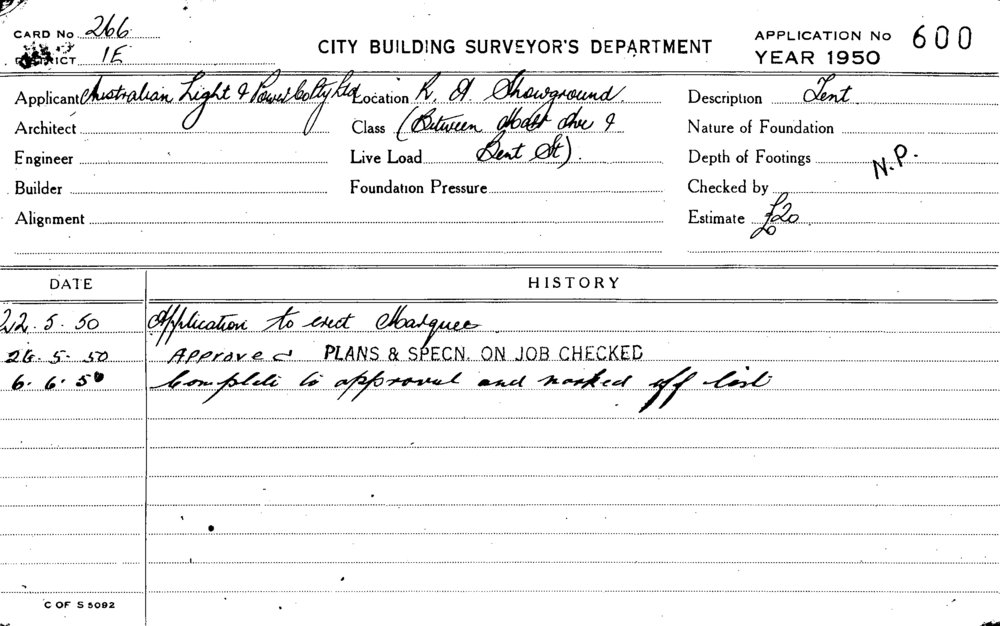 CARD No 266
DISTRICT 1E
CITY BUILDING SURVEYOR'S DEPARTMENT
APPLICATION No 600
YEAR 1950
Applicant Australian Light & Power Co Pty Ltd Location R. A Showground. Description Tent.
Architect Class (Between Hoddle Ave & Nature of Foundation
Engineer Live Load Bent St). Depth of Footings N.P.
Builder Foundation Pressure Checked by
Alignment Estimate £20
DATE HISTORY
22.5.50 Application to erect Marquee
26.5.50 Approved PLANS & SPECN. ON JOB CHECKED
6.6.50 Complete to approval and marked off list
C OF S 5092